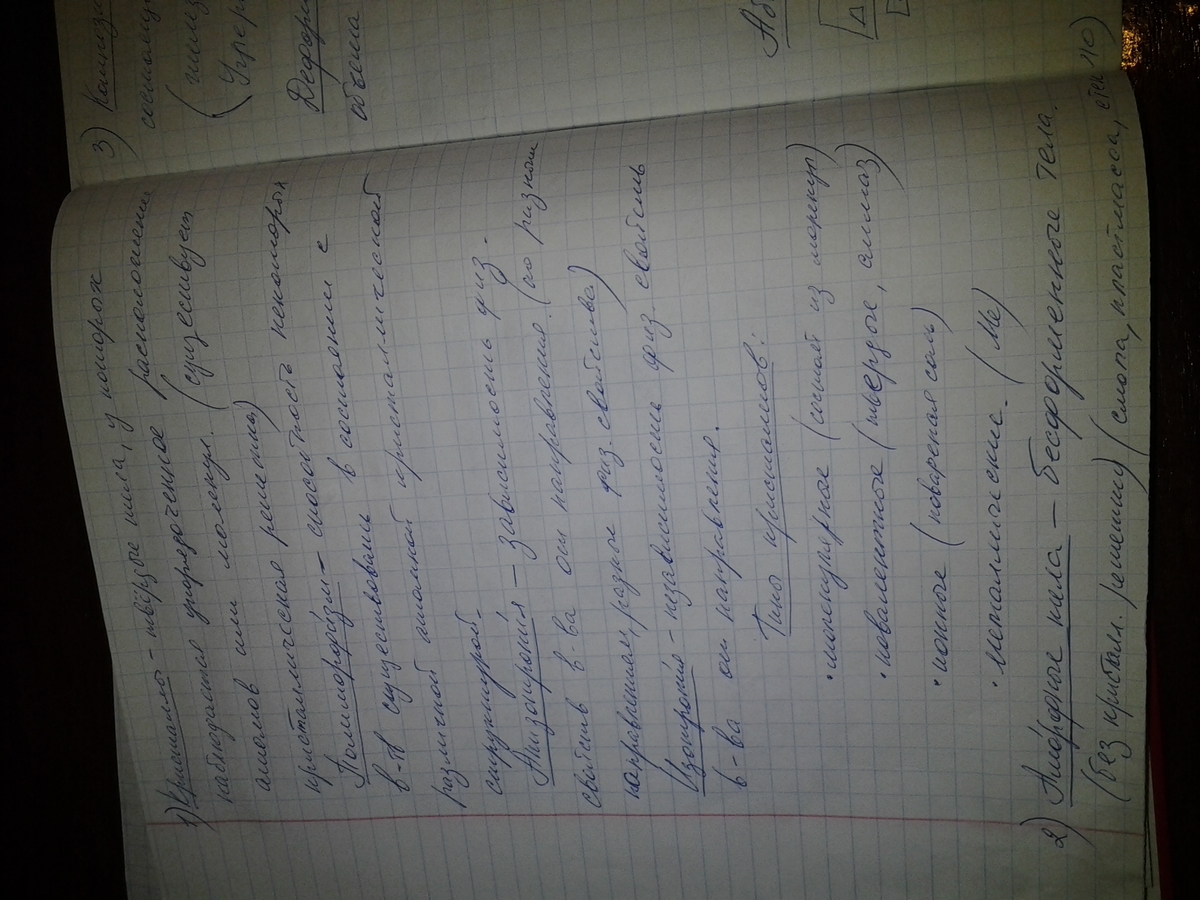 1) Кристаллы - твёрдые тела, у которых
наблюдается упорядоченное расположение
атомов или молекул. (существует
кристаллическая решетка)
Полиморфизм - способность некоторых
в-в существовать в состоянии с
различной атомной кристаллической
структурой.
Анизотропия - зависимость физ.
свойств в-ва от направления. (по разным
направлениям, разные физ. свойства)
Изотропия - независимость физ. свойств
в-ва от направления.
Типы кристаллов:
• молекулярное (состоит из молекул)
• ковалентное (твердое, алмаз)
• ионное (поваренная соль)
• металлические. (Ме)
2) Аморфные тела - бесформенные тела.
(без кристал. решетки) (смола, пластмасса, стекло)
3)
состоящие
(
(
объема
Аб
Д